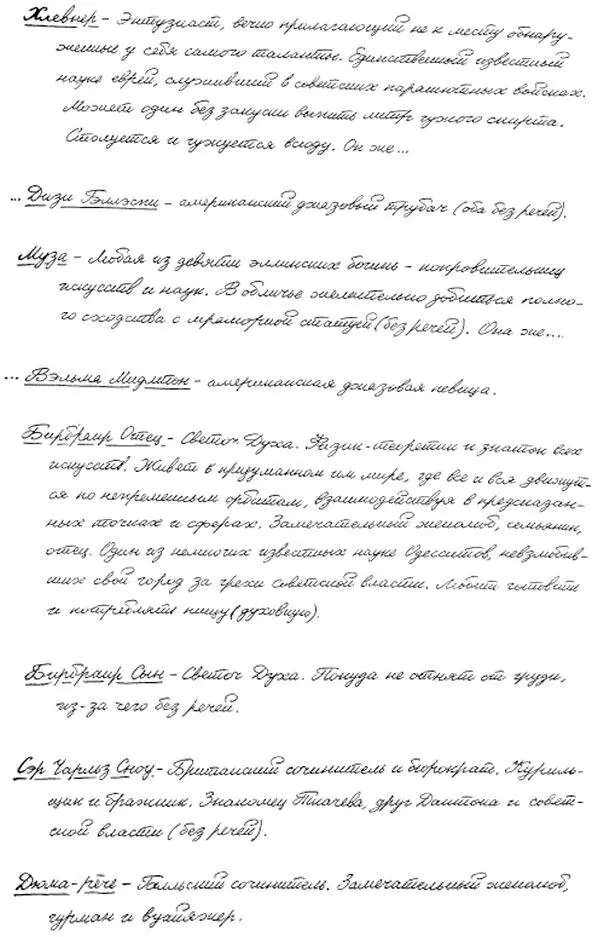 Хлевнер - Энтузиаст, вечно прилагающий не к месту обнару-
женные у себя самого таланты. Единственный известный
науке еврей, служивший в советских парашютных войсках.
Может один без закуски выпить литр чужого спирта.
Столуется и чужуется всюду. Он же...
... Дизи Гэллэспи - американский джазовый трубач (оба без речей).
Муза - Любая из девятки эллинских богинь - покровительниц
искусств и наук. В обличье желательно добиться полно-
го сходства с мраморной статуей (без речей). Она же....
... Вэльма Мидлтон - американская джазовая певица.
Бирбраир Отец - Светоч Духа. Физик-теоретик и знаток всех
искусств. Живет в придуманном им мире, где все и вся движут-
ся по непременным орбитам, взаимодействуя в предсказан-
ных точках и сферах. Замечательный женолюб, семьянин,
отец. Один из немногих известных науке Одесситов, невзлюбив-
ших свой город за грехи советской власти. Любит готовить
и потреблять пищу (духовную).
Бирбраир Сын - Светоч Духа. Покуда не отнят от груди,
из-за чего без речей.
Сэр Чарльз Сноу - Британский сочинитель и бюрократ. Куриль-
щик и бражник. Знакомец Ткачева, друг Данктона и совет-
ской власти (без речей).
Дюма-pére - Галльский сочинитель. Замечательный женолюб,
гурман и вуайяжер.